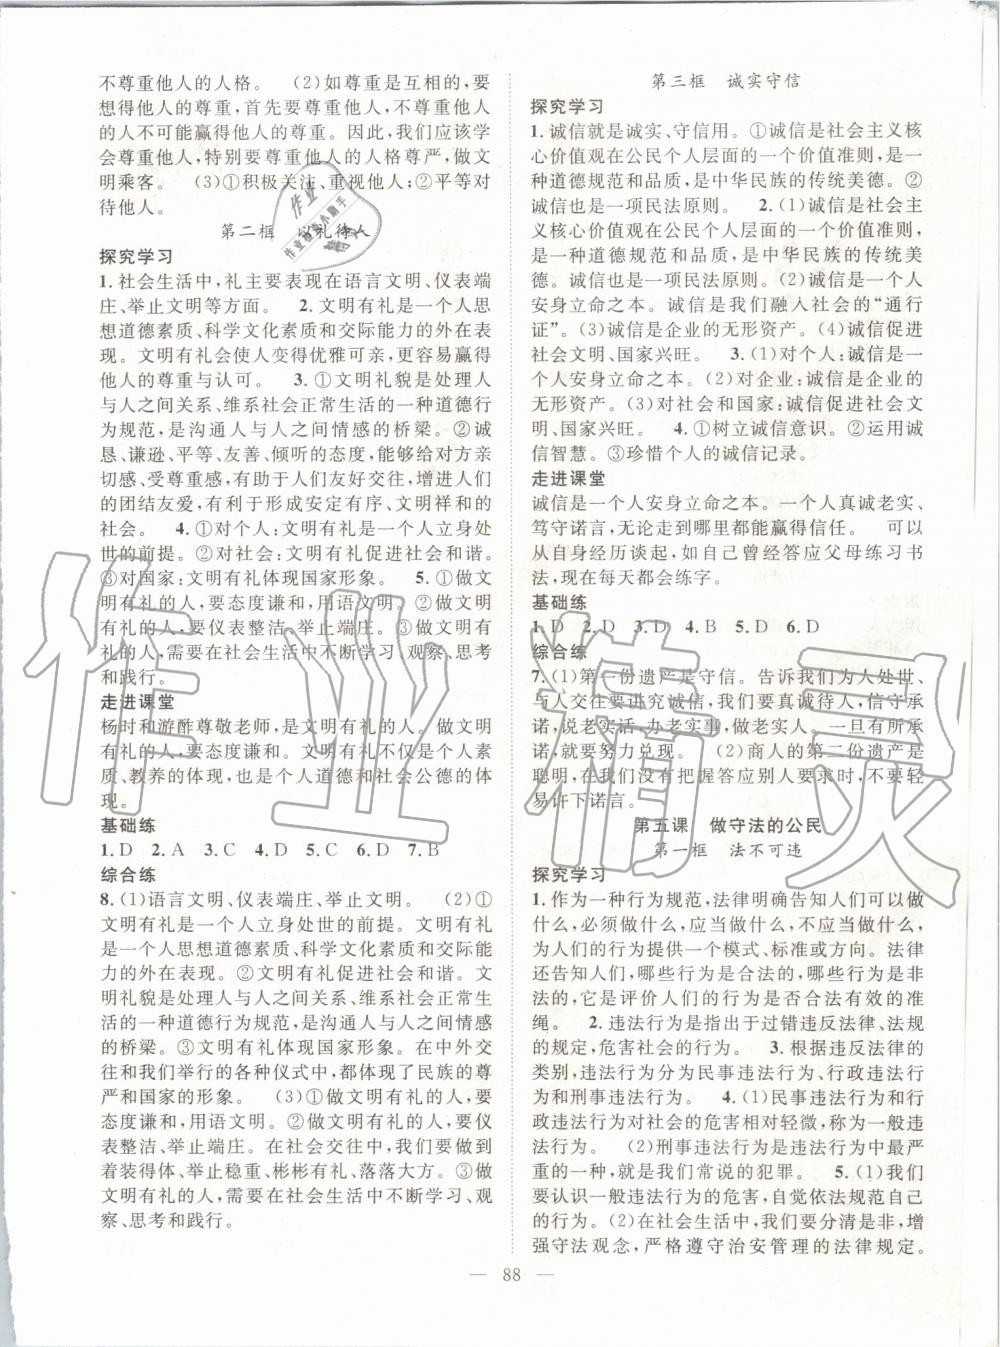 不尊重他人的人格。 (2)如尊重是互相的,要
想得他人的尊重,首先要尊重他人,不尊重他人
的人不可能赢得他人的尊重。因此,我们应该学
会尊重他人,特别要尊重他人的人格尊严,做文
明乘客。 (3)①积极关注、重视他人;②平等对
待他人。
第二框 以礼待人
探究学习
1.社会生活中,礼主要表现在语言文明、仪表端
庄、举止文明等方面。 2.文明有礼是一个人思
想道德素质、科学文化素质和交际能力的外在表
现。文明有礼会使人变得优雅可亲,更易赢得
他人的尊重与认可。 3.①文明礼貌是处理人
与人之间关系、维系社会正常生活的一种道德行
为规范,是沟通人与人之间情感的桥梁。②诚
恳、谦逊、平等、友善、倾听的态度,能给对方亲
切、受尊重感,有助于人们友好交往,增进人们
的团结友爱,有利于形成安定有序、文明祥和的
社会。 4.①对个人:文明有礼是一个人立身处
世的前提。②对社会:文明有礼促进社会和谐。
③对国家:文明有礼体现国家形象。 5.①做文
明有礼的人,要态度谦和,用语文明。②做文明
有礼的人,要仪表整洁、举止端庄。③做文明有
礼的人,需要在社会生活中不断学习、观察、思考
和践行。
走进课堂
杨时和游酢尊敬老师,是文明有礼的人。做文明
有礼的人,要态度谦和。文明有礼不仅是个人素
质、教养的体现,也是个人道德和社会公德的体
现。
基础练
1.D 2.A 3.C 4.D 5.C 6.D 7.B
综合练
8.(1)语言文明、仪表端庄、举止文明。 (2)①
文明有礼是一个人立身处世的前提。文明有礼
是一个人思想道德素质、科学文化素质和交际能
力的外在表现。②文明有礼促进社会和谐。文
明礼貌是处理人与人之间关系、维系社会正常生
活的一种道德行为规范,是沟通人与人之间情感
的桥梁。③文明有礼体现国家形象。在中外交
往和我们举行的各种仪式中,体现了民族的尊
严和国家的形象。 (3)①做文明有礼的人,要
态度谦和,用语文明。②做文明有礼的人,要仪
表整洁、举止端庄。在社会交往中,我们要做到
着装得体、举止稳重、彬彬有礼、落落大方。③做
文明有礼的人,需要在社会生活中不断学习、观
察、思考和践行。
第三框 诚实守信
探究学习
1.诚信就是诚实、守信用。①诚信是社会主义核
心价值观在公民个人层面的一个价值准则,是一
种道德规范和品质,是中华民族的传统美德。②
诚信是一项民法原则。 2.(1)诚信是社会主义
核心价值观在公民个人层面的一个价值准则,
是一种道德规范和品质,是中华民族的传统美
德。诚信也是一项民法原则。(2)诚信是一个人
安身立命之本。诚信是我们融入社会的“通行
证”。(3)诚信是企业的无形资产。(4)诚信促进
社会文明、国家兴旺。 3.(1)对个人:诚信是一
个人安身立命之本。(2)对企业:诚信是企业的
无形资产。(3)对社会和国家:诚信促进社会文
明、国家兴旺。 4.①树立诚信意识。②运用诚
信智慧。③珍惜个人的诚信记录。
走进课堂
诚信是一个人安身立命之本。一个人真诚老实、
笃守诺言,无论走到哪里都能赢得信任。 可以
从自身经历谈起,如自己曾经答应父母练习书
法,现在每天都会练字。
基础练
1.D 2.D 3.D 4.B 5.D 6.D
综合练
7.(1)第一份遗产是守信。告诉我们为人处世、
与人交往要讲究诚信,我们要真诚待人,信守承
诺,说老实话,办老实事,做老实人。一旦有所承
诺,就要努力兑现。 (2)商人的第二份遗产是
聪明,在我们没有把握答应别人要求时,不要轻
易许下诺言。
第五课 做守法的公民
第一框 法不可违
探究学习
1.作为一种行为规范,法律明确告知人们可以做
什么,必须做什么,应当做什么,不应当做什么,
为人们的行为提供一个模式、标准或方向。法律
还告知人们,哪些行为是合法的,哪些行为是非
法的,它是评价人们的行为是否合法有效的准
绳。 2.违法行为是指出于过错违反法律、法规
的规定,危害社会的行为。 3.根据违反法律的
类别,违法行为分为民事违法行为、行政违法行为
和刑事违法行为。 4.(1)民事违法行为和行
政违法行为对社会的危害相对轻微,称为一般违
法行为。 (2)刑事违法行为是违法行为中最严
重的一种,就是我们常说的犯罪。 5.(1)我们
要认识一般违法行为的危害,自觉依法规范自己
的行为。(2)在社会生活中,我们要分清是非,增
强守法观念,严格遵守治安管理的法律规定。
— 88 —
作业精灵